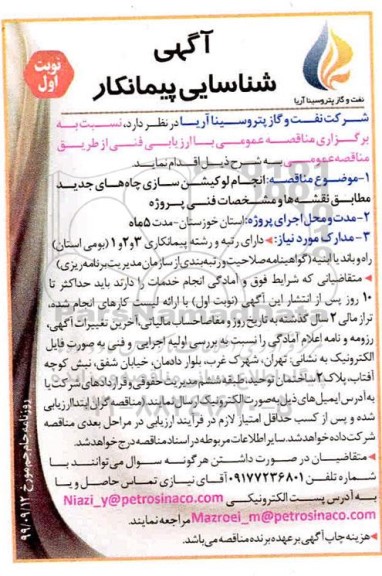 آگهی
شناسایی پیمانکار
نوبت
اول
نفت و گاز پتروسینا آریا
شرکت نفت و گاز پتروسینا آریا در نظر دارد، نسبت به
برگزاری مناقصه عمومی با ارزیابی فنی از طریق
مناقصه عمومی به شرح ذیل اقدام نماید.
۱-موضوع مناقصه: انجام لوکیشن سازی چاه‌های جدید
مطابق نقشه‌ها و مشخصات فنی پروژه
۲-مدت و محل اجرای پروژه: استان خوزستان-مدت ۵ ماه
۳-مدارک مورد نیاز: دارای رتبه و رشته پیمانکاری ۳و۲و۱ (بومی استان)
راه و باند یا ابنیه (گواهینامه صلاحیت و رتبه‌بندی از سازمان مدیریت برنامه‌ریزی)
متقاضیانی که شرایط فوق و آمادگی انجام خدمات را دارند باید حداکثر تا
۱۰ روز پس از انتشار این آگهی (نوبت اول) با ارائه لیست کارهای انجام شده،
تراز مالی ۲ سال گذشته به تاریخ روز و مفاصاحساب مالیاتی، آخرین تغییرات آگهی،
رزومه و نامه اعلام آمادگی را نسبت به بررسی اولیه اجرایی و فنی به صورت فایل
الکترونیک به نشانی: تهران، شهرک غرب، بلوار دادمان، خیابان شفق، نبش کوچه
آفتاب، پلاک ۲ ساختمان توحید، طبقه ششم مدیریت حقوقی و قراردادهای شرکت یا
به آدرس ایمیل‌های ذیل به صورت الکترونیک ارسال نمایند. (مناقصه‌گران ابتدا ارزیابی
شده و پس از کسب حداقل امتیاز لازم در فرآیند ارزیابی در مراحل بعدی مناقصه
شرکت داده خواهند شد. سایر اطلاعات مربوطه در اسناد مناقصه درج خواهد شد.
متقاضیان در صورت داشتن هرگونه سوال می‌توانند با
شماره تلفن ۰۹۱۷۷۲۳۶۸۰۱ آقای نیازی تماس حاصل و یا
به آدرس پست الکترونیکی Niazi_y@petrosinaco.com
Mazroei_m@petrosinaco.com مراجعه نمایند.
هزینه چاپ آگهی بر عهده برنده مناقصه می‌باشد.
روزنامه جام جم مورخ ۹۹/۰۹/۱۲